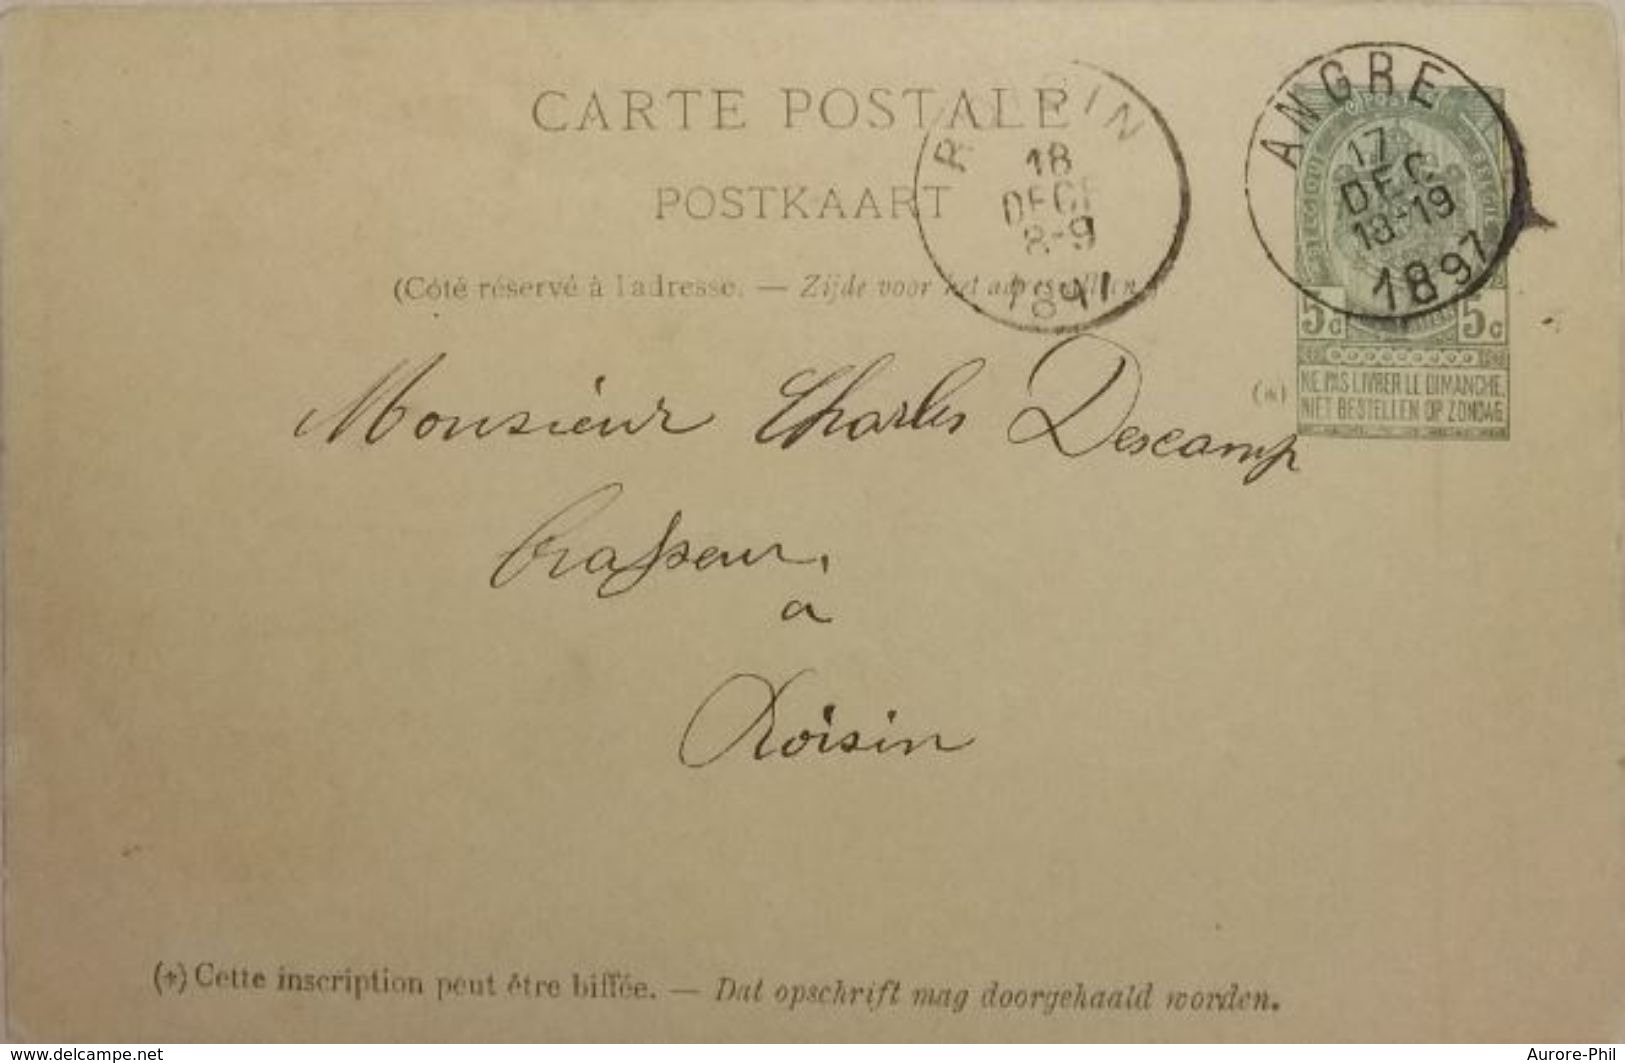 CARTE POSTALE
POSTKAART
(Côté réservé à l'adresse. — Zijde voor het adres
ANGRE
17
DEC
18-19
1897
IN
18
DECE
8-9
5c 5c
(*) NE PAS LIVRER LE DIMANCHE.
NIET BESTELLEN OP ZONDAG.
Monsieur Charles Descamp
brasseur,
a
Roisin
(*) Cette inscription peut être biffée. — Dat opschrift mag doorgehaald worden.
www.delcampe.net
Aurore-Phil